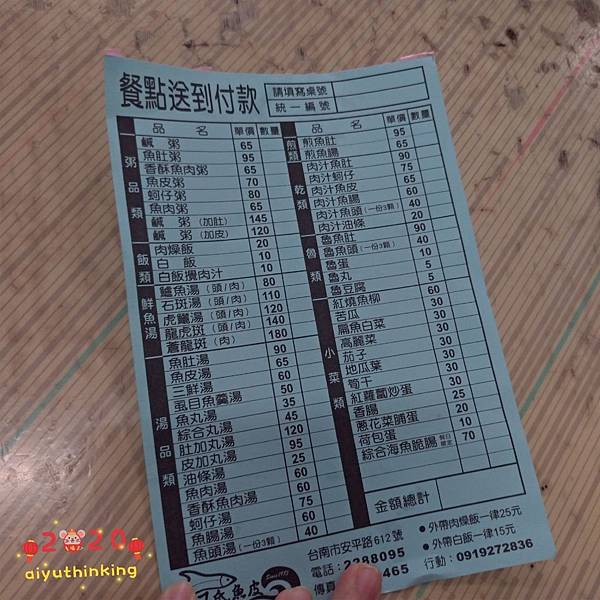 餐點送到付款
請填寫桌號
統一編號
品名 單價 數量
粥品類
鹹粥 65
魚肚粥 95
香酥魚肉粥 65
魚皮粥 70
蚵仔粥 80
魚肉粥 65
鹹粥(加肚) 145
鹹粥(加皮) 120
飯類
肉燥飯 20
白飯 10
白飯攪肉汁 10
鮮魚湯
鱸魚湯(頭/肉) 80
石斑湯(頭/肉) 110
虎鱺湯(頭/肉) 120
龍虎斑(頭/肉) 140
蒼龍斑(肉) 180
湯品類
魚肚湯 90
魚皮湯 65
三鮮湯 60
虱目魚羹湯 50
魚丸湯 35
綜合丸湯 45
肚加丸湯 120
皮加丸湯 95
油條湯 25
魚肉湯 60
香酥魚肉湯 60
蚵仔湯 75
魚腸湯 60
魚頭湯(一份3顆) 40
品名 單價 數量
煎類
煎魚肚 95
煎魚腸 65
乾類
肉汁魚肚 90
肉汁蚵仔 75
肉汁魚皮 65
肉汁魚腸 60
肉汁魚頭(一份3顆) 40
肉汁油條 20
魯類
魯魚肚 90
魯魚頭(一份3顆) 40
魯蛋 10
魯丸 5
魯豆腐 5
小菜類
紅燒魚柳 60
苦瓜 30
扁魚白菜 30
高麗菜 30
茄子 30
地瓜葉 30
筍干 30
紅蘿蔔炒蛋 30
香腸 25
蔥花菜脯蛋 20
荷包蛋 10
綜合海魚脆腸 假日限定 70
金額總計
台南市安平路612號
電話:2288095
傳真 465
●外帶肉燥飯一律25元
●外帶白飯一律15元
行動:0919272836
魚皮
2020
aiyuthinking